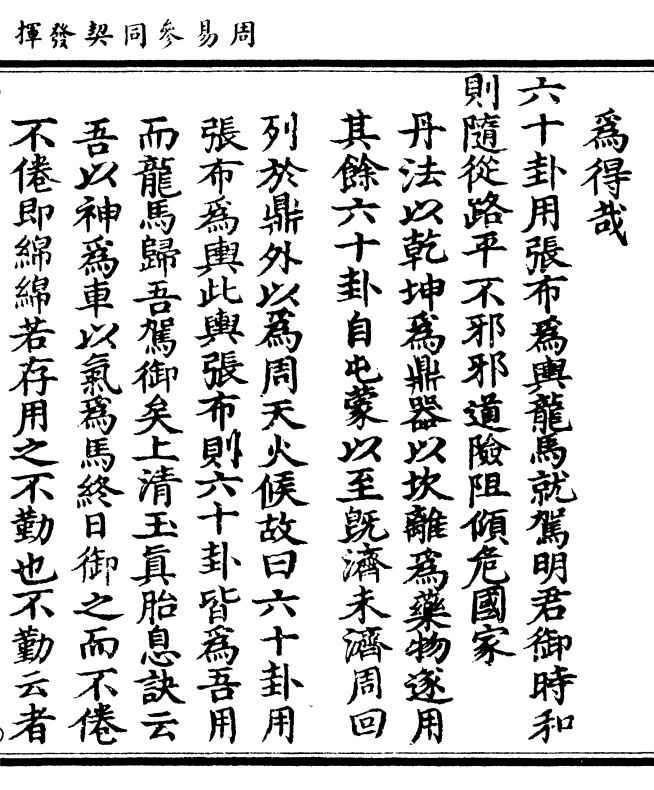 周易參同契發揮
爲得哉
六十卦用張布爲輿龍馬就駕明君御時和
則隨從路平不邪邪道險阻傾危國家
丹法以乾坤爲鼎器以坎離爲藥物遂用
其餘六十卦自屯蒙以至旣濟未濟周回
列於鼎外以爲周天火候故曰六十卦用
張布爲輿此輿張布則六十卦皆爲吾用
而龍馬歸吾駕御矣上清玉眞胎息訣云
吾以神爲車以氣爲馬終日御之而不倦
不倦即綿綿若存用之不勤也不勤云者